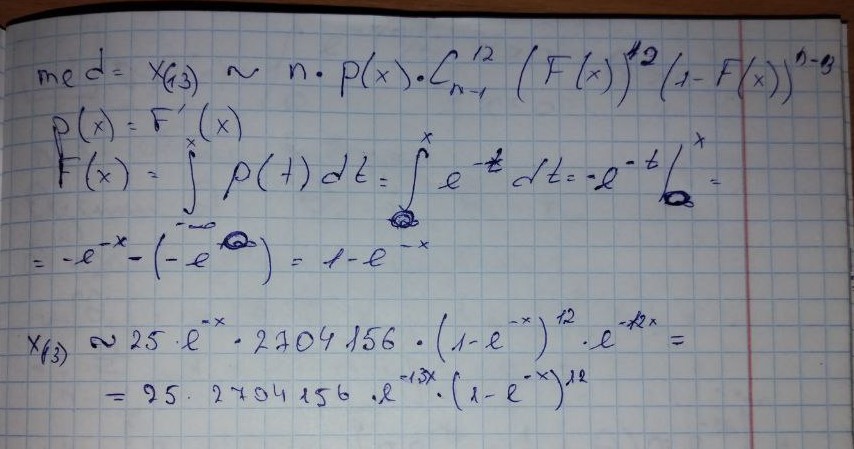 med = x₍₁₃₎ ~ n · p(x) · C_{n-1}^{12} (F(x))^{12} (1 - F(x))^{n-13}
p(x) = F'(x)
F(x) = ∫_{-∞}^{x} p(t) dt = ∫_{0}^{x} e^{-t} dt = -e^{-t} |_{0}^{x} =
= -e^{-x} - (-e^{0}) = 1 - e^{-x}
x₍₁₃₎ ~ 25 · e^{-x} · 2704156 · (1 - e^{-x})^{12} · e^{-12x} =
= 25 · 2704156 · e^{-13x} · (1 - e^{-x})^{12}